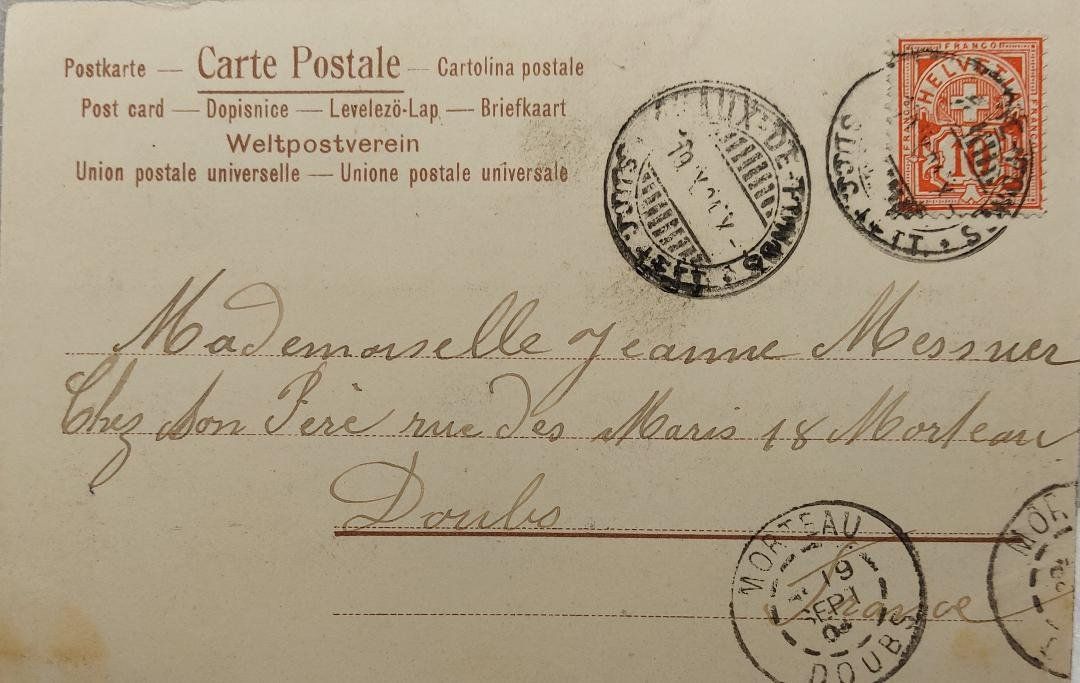 Postkarte — Carte Postale — Cartolina postale
Post card — Dopisnice — Levelezö-Lap — Briefkaart
Weltpostverein
Union postale universelle — Unione postale universale
FRANCO
HELVETIA
FRANCO
FRANCO
10
Mademoiselle Jeanne Messner
Chez son Père rue des Maris 18 Morteau
Doubs
France
MORTEAU
19
SEPT
DOUBS
MOR